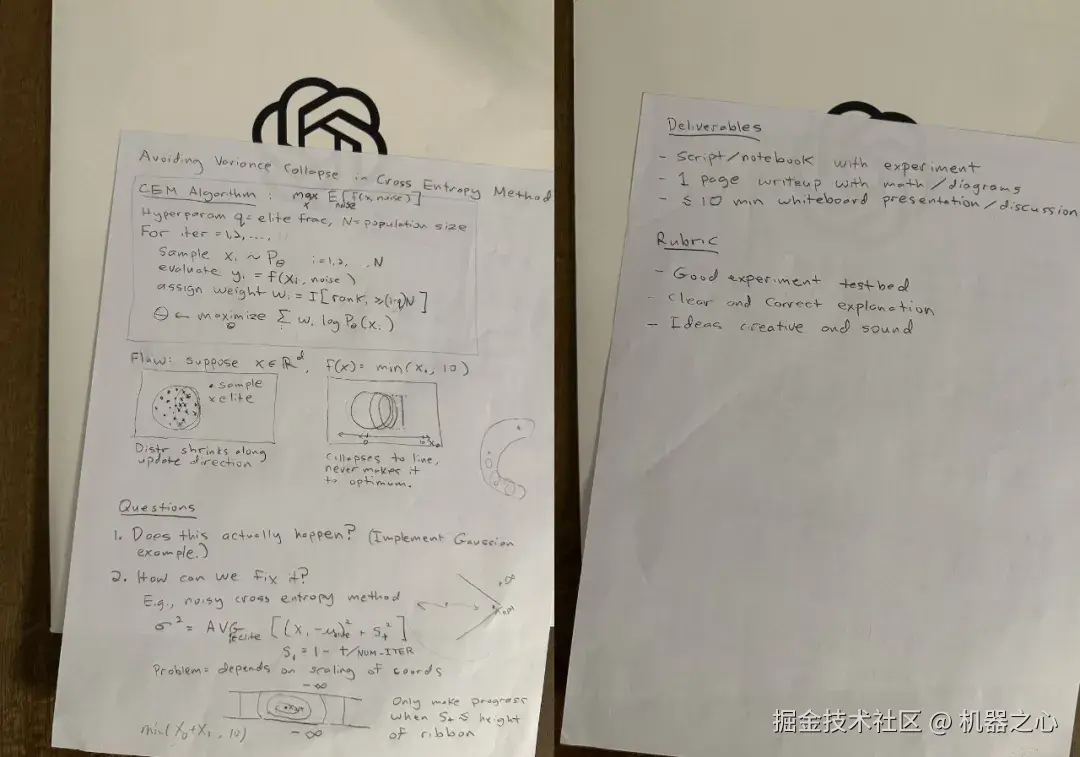 Avoiding Variance Collapse in Cross Entropy Method
CEM Algorithm: max E[f(x, noise)]
x noise
Hyperparam q = elite frac, N = population size
For iter = 1,2, ...,
Sample xᵢ ~ Pθ i=1,2, .. N
evaluate yᵢ = f(xᵢ, noise)
assign weight wᵢ = I[rankᵢ ≥(1-q)N]
θ ← maximize Σ wᵢ log Pθ(xᵢ)
θ i
Flaw: suppose x ∈ ℝᵈ, f(x) = min(x₀, 10)
• sample
x elite
Distr shrinks along
update direction
0
Collapses to line,
never makes it
to optimum.
Questions
1. Does this actually happen? (Implement Gaussian
example.)
2. How can we fix it?
E.g., noisy cross entropy method
σ² = AVG [(xᵢ - μ)² + Sₜ²]
i∈elite
Sₜ = 1 - t/NUM-ITER
Problem = depends on scaling of coords
-∞
-∞
min(x₀+x₁, 10)
Only make progress
when Sₜ ≤ height
of ribbon
Deliverables
- Script/notebook with experiment
- 1 page writeup with math/diagrams
- ≤ 10 min whiteboard presentation/discussion
Rubric
- Good experiment testbed
- Clear and correct explanation
- Ideas creative and sound
掘金技术社区 @ 机器之心